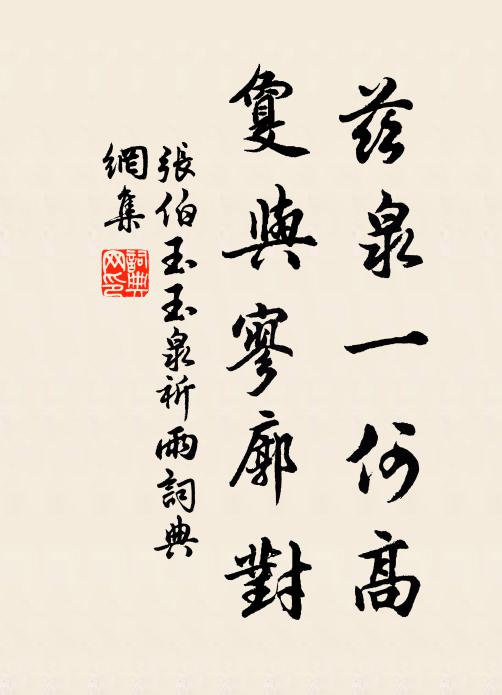 茲泉一何高
夐與寥廓對
張伯玉玉泉祈雨詞典
網集
詞典
网印